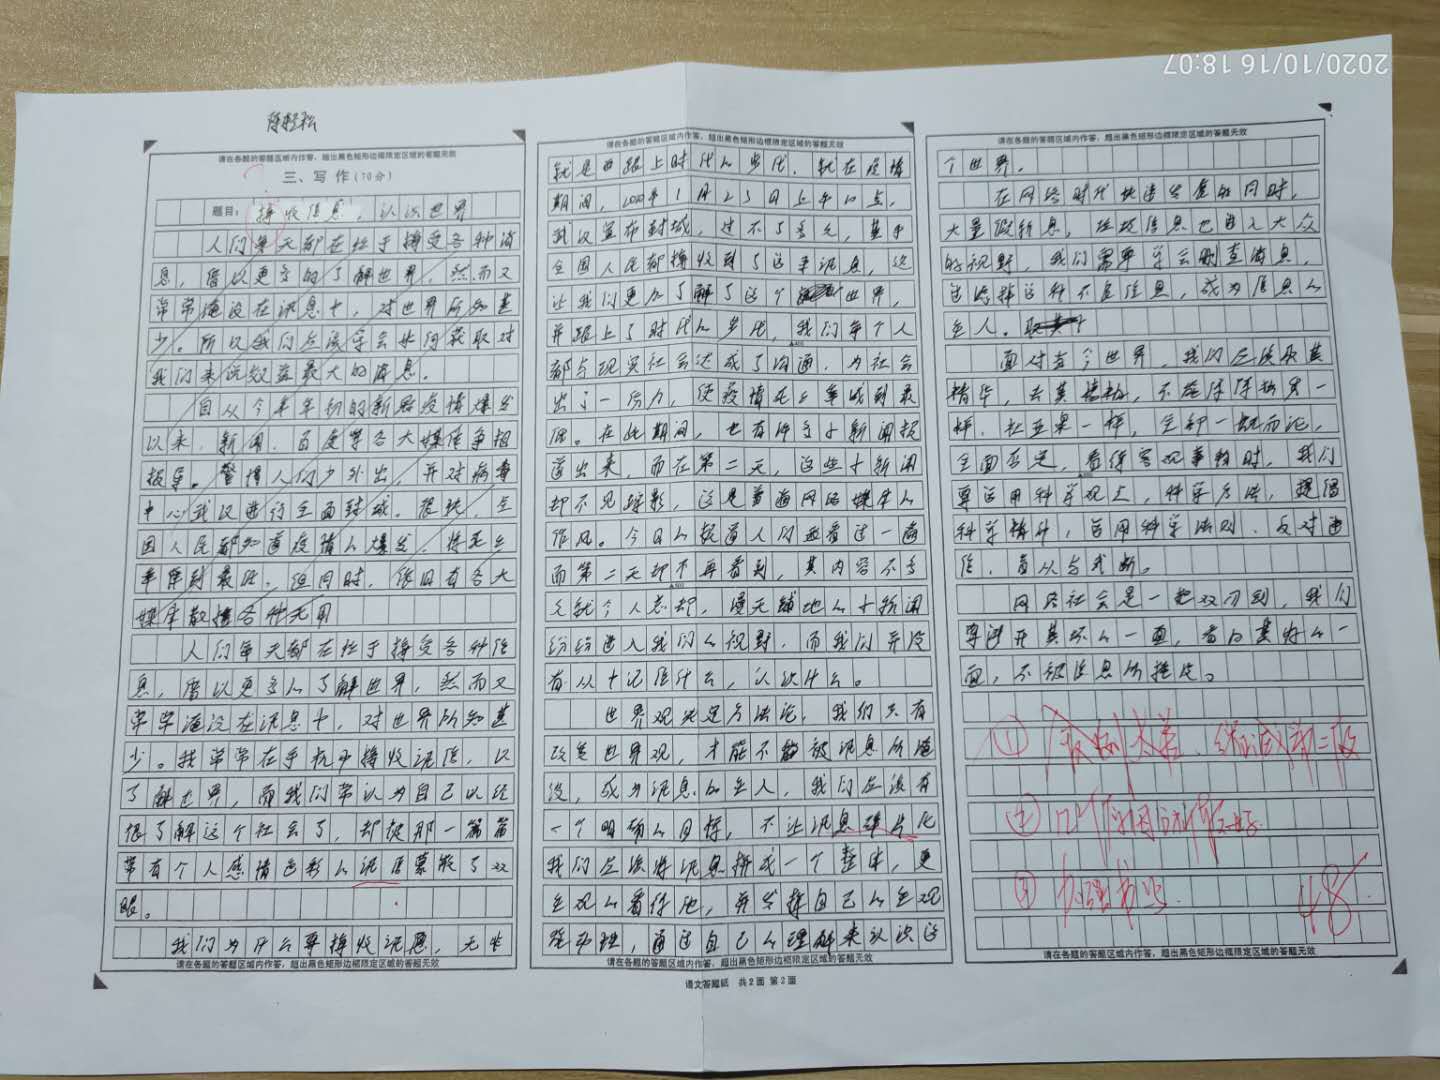 2020/10/16 18:07
请在各题的答题区域内作答，超出黑色矩形边框限定区域的答题无效
三、写 作（70分）
题目：接收信息，认识世界
人们每天都在忙于接受各种消
息，借以更多的了解世界，然而又
常常淹没在讯息中，对世界所知甚
少。所以我们应该学会如何获取对
我们来说效益最大的信息。
自从今年年初的新冠疫情爆发
以来，新闻、百度等各大媒体争相
报导。警惕人们少外出，并对病毒
中心武汉进行全面封城。很快，全
国人民都知道疫情的爆发，将死亡
率降到最低。但同时，依旧有各大
媒体散播各种无用
人们每天都在忙于接受各种信
息，借以更多的了解世界，然而又
常常淹没在讯息中，对世界所知甚
少。我常常在手机中接收讯信，以
了解世界，而我们常认为自己以经
很了解这个社会了，却被那一篇篇
带有个人感情色彩的讯息蒙蔽了双
眼。
我们为什么要接收讯息，无非
请在各题的答题区域内作答，超出黑色矩形边框限定区域的答题无效
请在各题的答题区域内作答，超出黑色矩形边框限定区域的答题无效
就是要跟上时代的步伐，就在疫情
期间，2020年1月23日上午10点，
武汉宣布封城，过不了多久，基乎
全国人民都接收到了这条讯息，这
让我们更加了解了这个世界，
并跟上了时代的步伐，我们每个人
都与现实社会达成了沟通，为社会
出了一份力，使疫情死亡率减到最
低。在此期间，也有许多小新闻报
道出来，而在第二天，这些小新闻
却不见踪影，这是普遍网络媒体的
作风。今日的报道人们要看过一遍
而第二天却不再看到，其内容不多
久就令人忘却，漫天铺地的小新闻
纷纷进入我们的视野，而我们并没
有从中记住什么，认识什么。
世界观决定方法论，我们只有
改变世界观，才能不被讯息所淹
没，成为讯息的主人，我们应该有
一个明确的目标，不让讯息碎片化
我们应该将讯息拼成一个整体，更
主观的看待他，并发挥自己的主观
能动性，通过自己的理解来认识这
请在各题的答题区域内作答，超出黑色矩形边框限定区域的答题无效
语文答题纸 共2面 第2面
请在各题的答题区域内作答，超出黑色矩形边框限定区域的答题无效
个世界。
在网络时代快速发展的同时，
大量假新息，垃圾信息也进入大众
的视野，我们需要学会删查消息，
过滤掉这种不良信息，成为信息的
主人。
面对当今世界，我们应该取其
精华，去其糟粕，不能一
样，一样，全部一概而论，
全面否定，看待客观事物时，我们
要运用科学观点，科学方法，提倡
科学精神，善用科学法则，反对迷
信，盲从与武断。
网络社会是一把双刃剑，我们
要避开其坏的一面，看向其好的一
面，不被信息所
① 举例太差，
②
③ 加强书写
48
请在各题的答题区域内作答，超出黑色矩形边框限定区域的答题无效